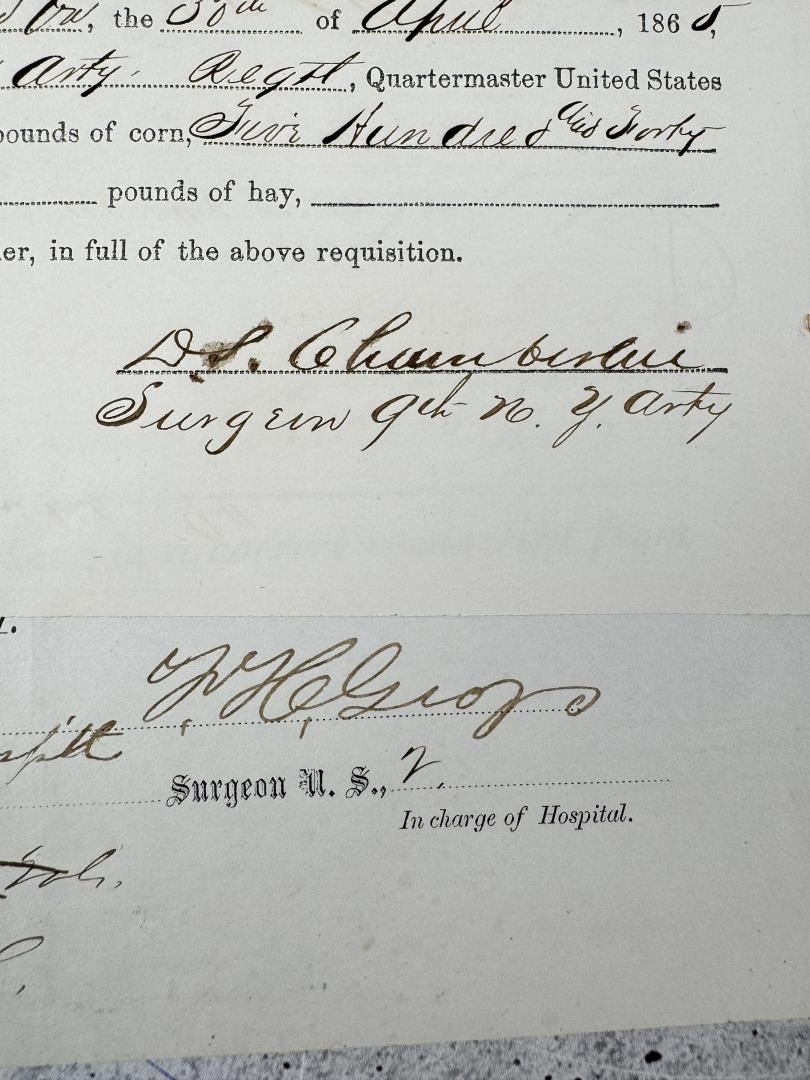 the 30th of April, 1865,
Arty. Regt, Quartermaster United States
pounds of corn, Five Hundred and Forty
pounds of hay,
er, in full of the above requisition.
D.S. Chamberlain
Surgeon 9th N. Y. Arty
W, H, Gross
Surgeon U. S., V.
In charge of Hospital.